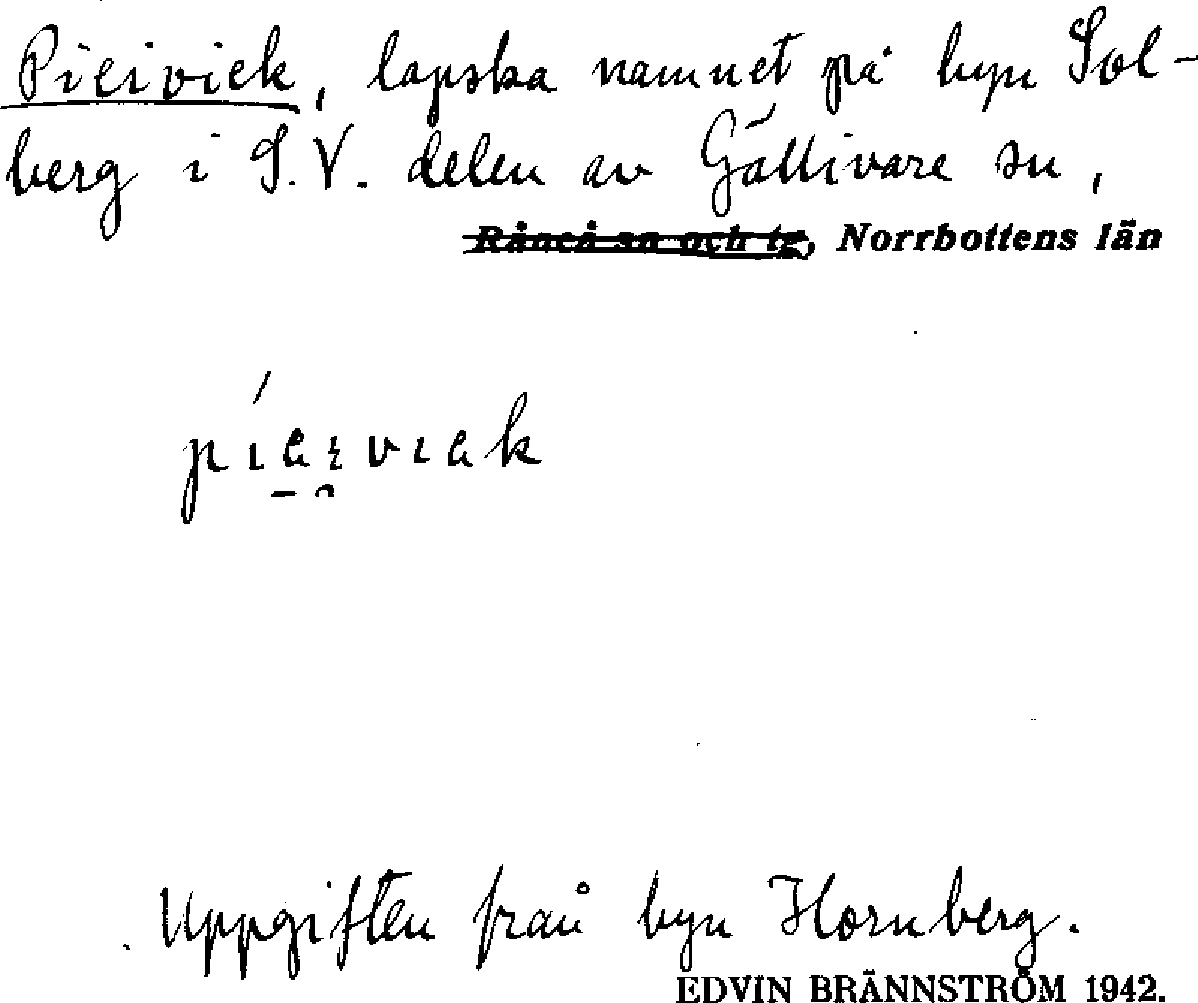 Pieiviek, lapska namnet på byn Sol-
berg i S.V. delen av Gällivare sn,
Råneå sn och tg, Norrbottens län
píeiviek
Uppgiften från byn Hornberg.
EDVIN BRÄNNSTRÖM 1942.